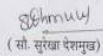 ( सौ. सुरेखा देशमुख )